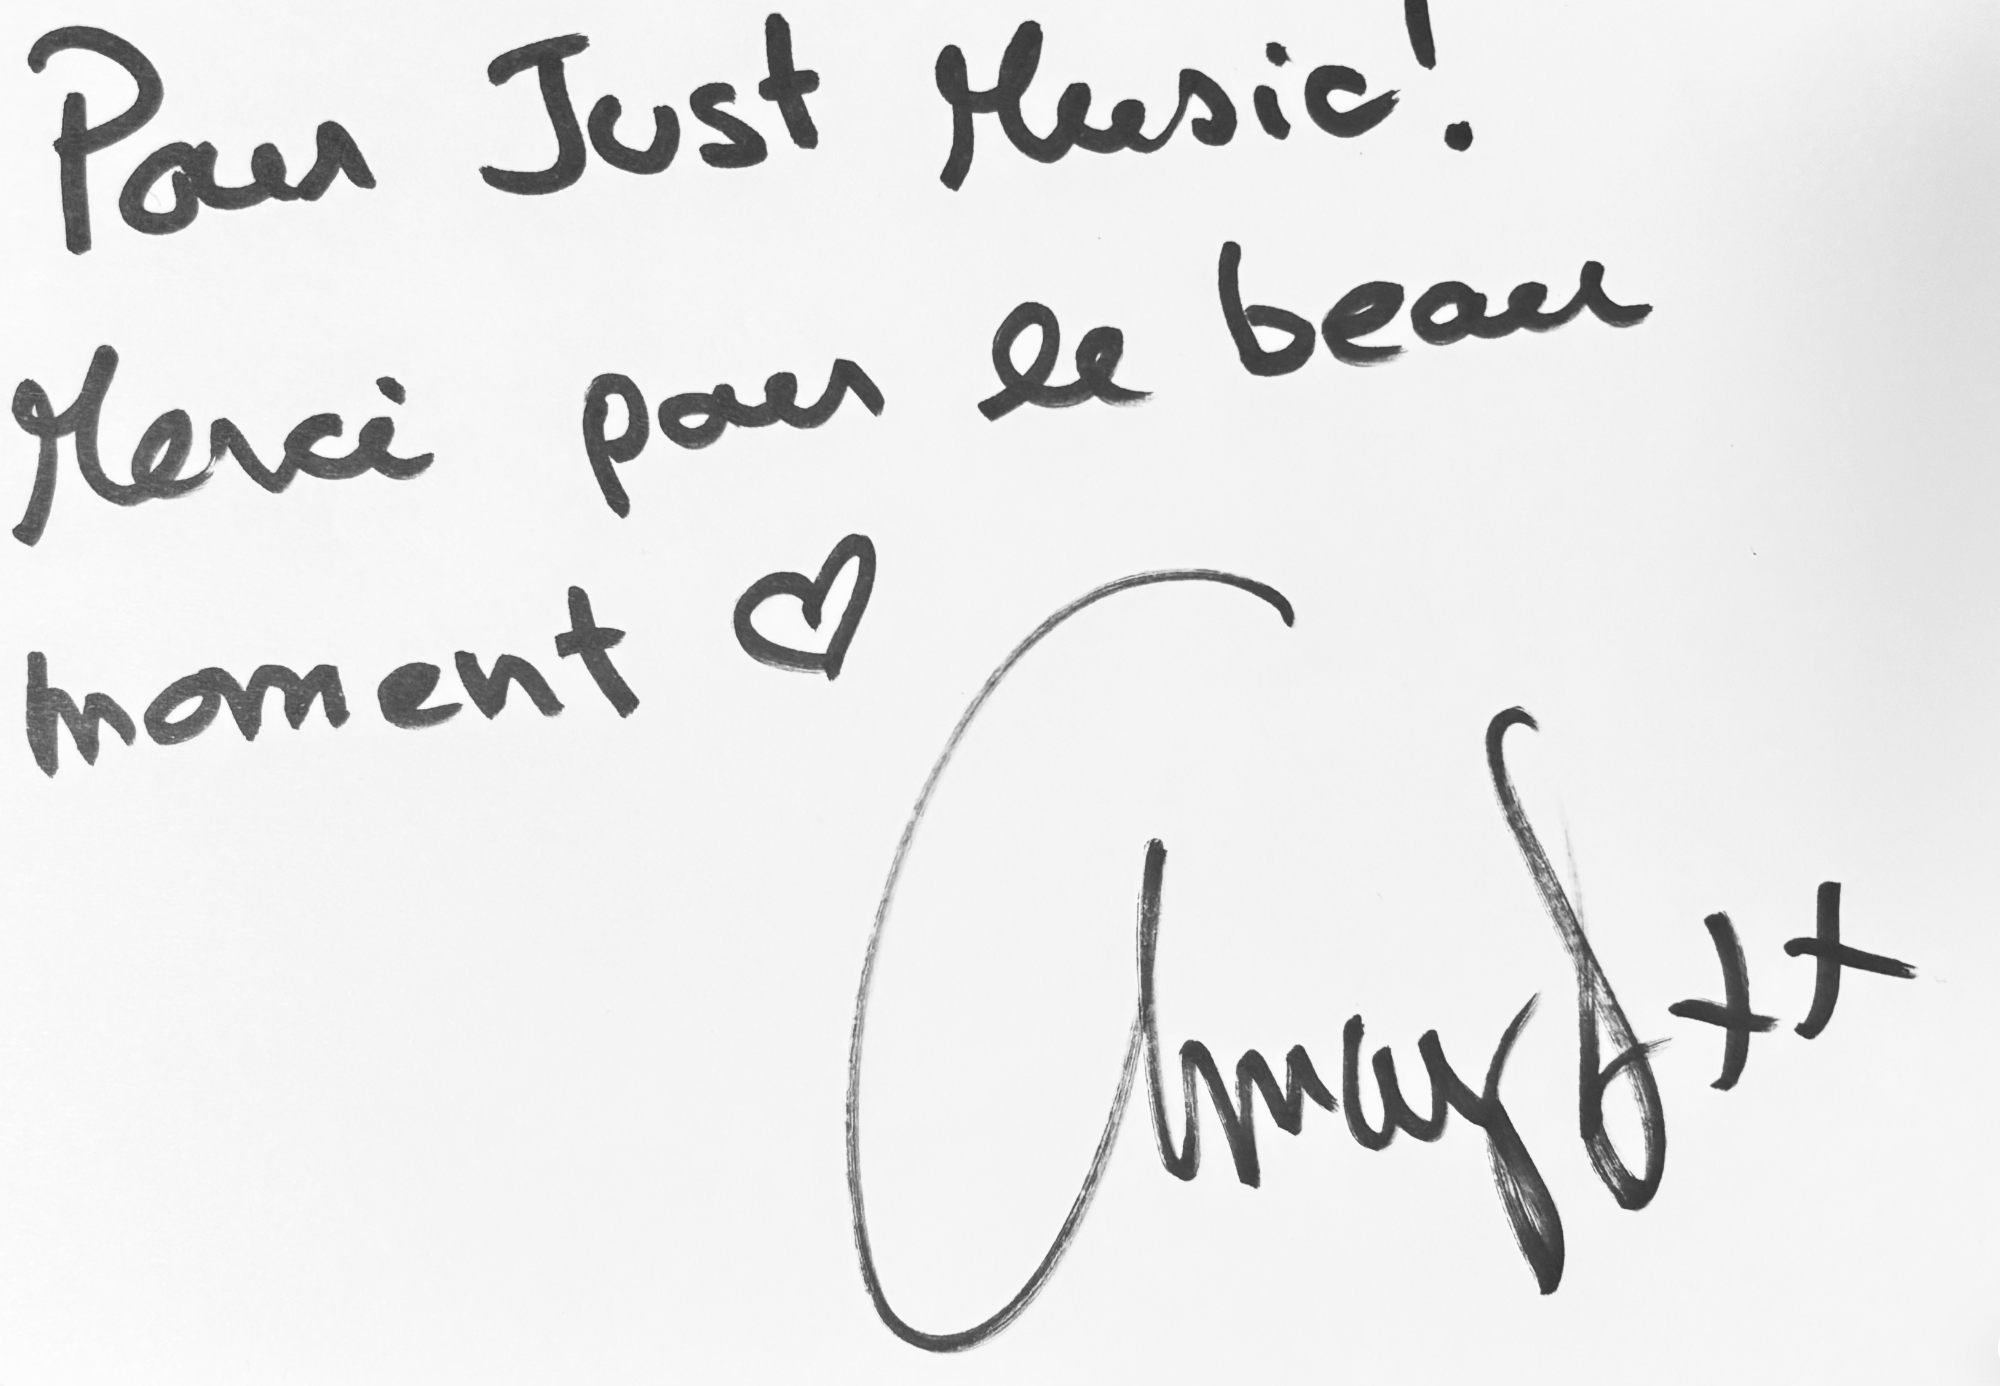 Pour Just Music!
Merci pour le beau
moment ♡
xx